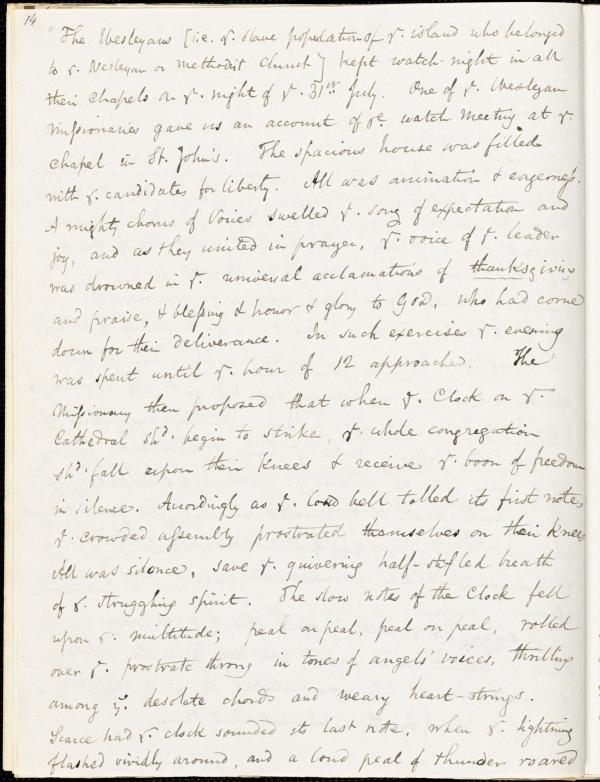 14
"The Wesleyans [i.e. yᵉ. slave population of yᵉ. island who belonged
to yᵉ. Wesleyan or Methodist Church] kept watch-night in all
their chapels on yᵉ. night of yᵉ. 31ˢᵗ July. One of yᵉ. Wesleyan
missionaries gave us an account of yᵉ. watch meeting at yᵉ.
chapel in St. John's. The spacious house was filled
with yᵉ. candidates for liberty. All was animation & eagerness.
A mighty chorus of Voices swelled yᵉ. song of expectation and
joy, and as they united in prayer, yᵉ. voice of yᵉ. leader
was drowned in yᵉ. universal acclamations of thanksgiving
and praise, & blessing & honor & glory to God, who had come
down for their deliverance. In such exercises yᵉ. evening
was spent until yᵉ. hour of 12 approached. The
Missionary then proposed that when yᵉ. Clock on yᵉ.
Cathedral shᵈ. begin to strike, yᵉ. whole congregation
shᵈ. fall upon their knees & receive yᵉ. boon of freedom
in silence. Accordingly as yᵉ. loud bell tolled its first note,
yᵉ. crowded assembly prostrated themselves on their knees
All was silence, save yᵉ. quivering half-stifled breath
of yᵉ. struggling spirit. The slow notes of the Clock fell
upon yᵉ. multitude; peal on peal, peal on peal, rolled
over yᵉ. prostrate throng in tones of angels' voices, thrilling
among yᵉ. desolate chords and weary heart-strings.
Scarce had yᵉ. clock sounded its last note, when yᵉ. lightning
flashed vividly around, and a loud peal of thunder roared